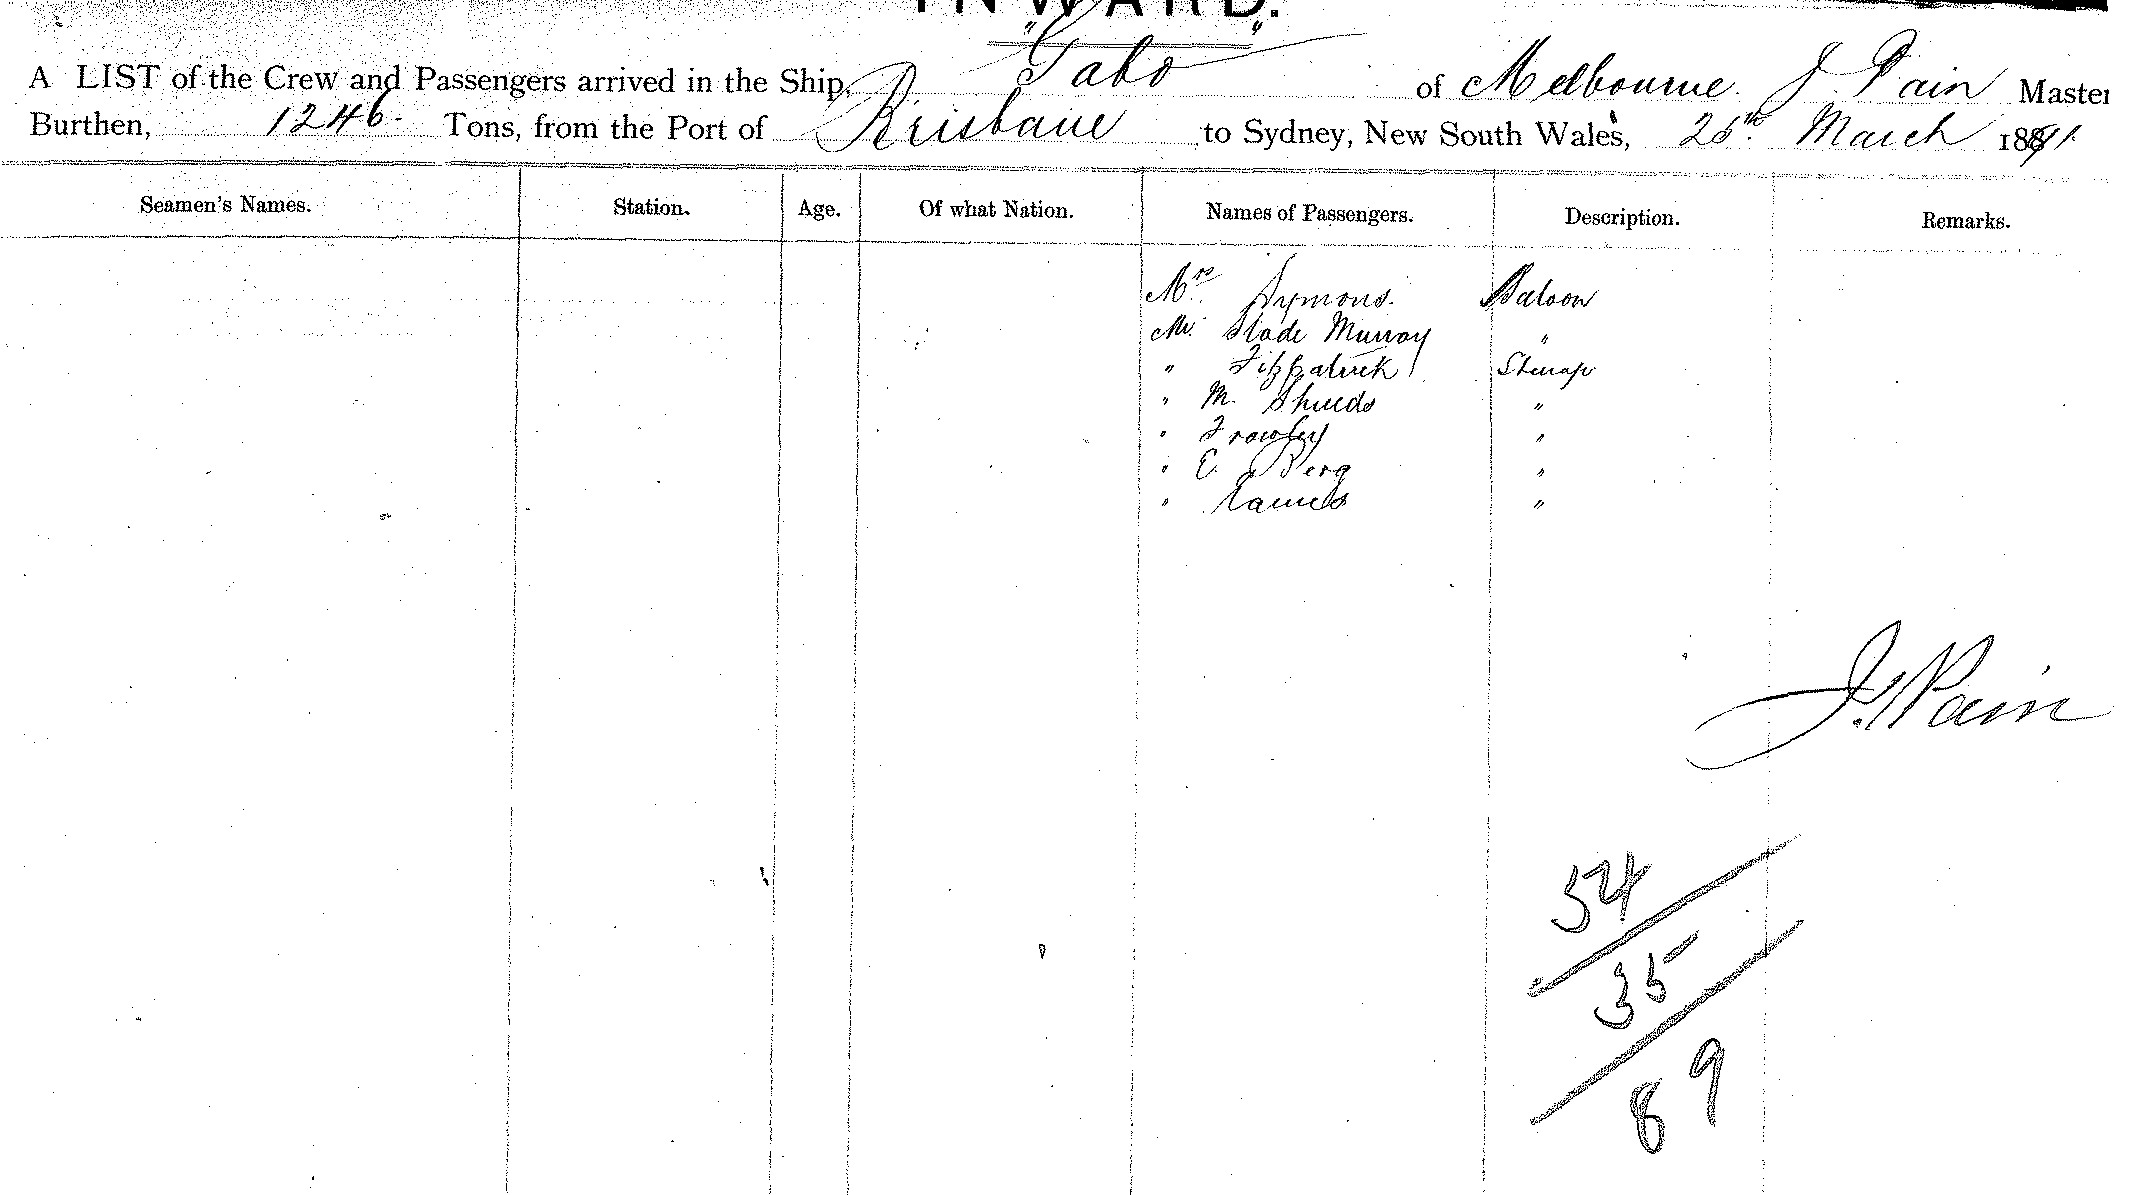 INWARD.
A LIST of the Crew and Passengers arrived in the Ship, "Gabo" of Melbourne. J. Pain Master
Burthen, 1246. Tons, from the Port of Brisbane to Sydney, New South Wales, 25th March 1891.
Seamen's Names. Station. Age. Of what Nation. Names of Passengers. Description. Remarks.
Mrs. Symons. Saloon
Mr. Slade Murray "
" Fitzpatrick Steerage
" M. Shields "
" Frawley "
" E. Berg "
"
J. Pain
54
35
89